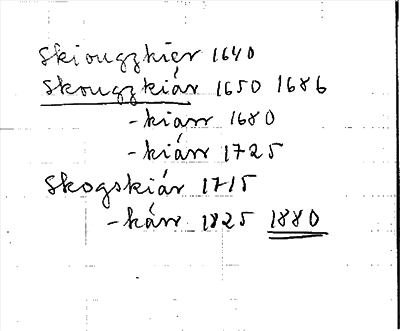 Skiougzkier 1640
Skougzkiár 1650 1686
-kiarr 1680
-kiárr 1725
Skogskiár 1715
-kárr 1825 1880